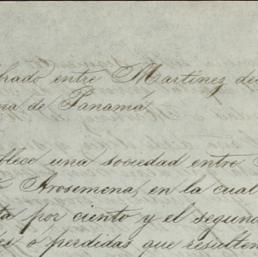 brado entre Martinez de
de Panamá
blece una sociedad entre
Arosemena, en la cual
ta por ciento y el segun
ó perdidas que resulten